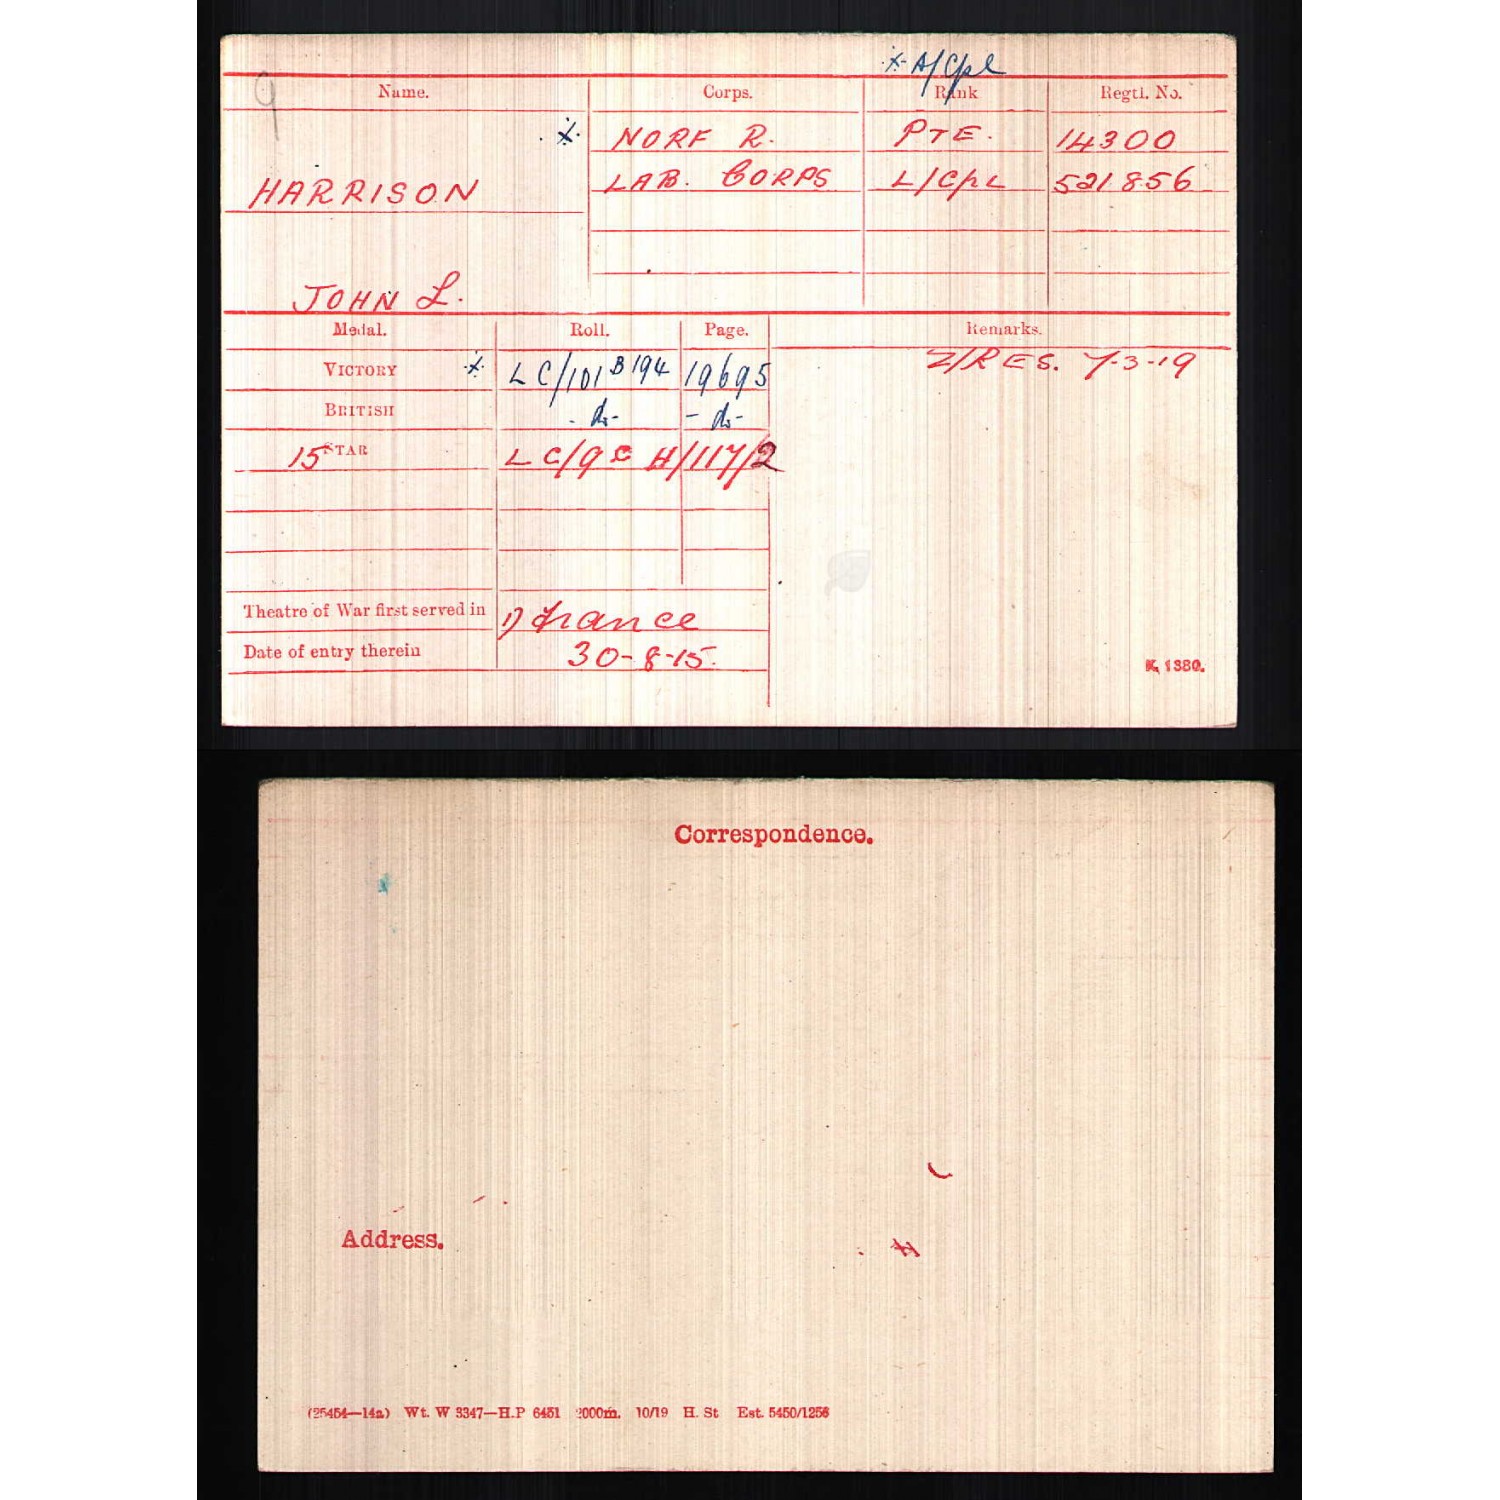 x A/Cpl
Name. Corps. Rank Regtl. No.
x NORF R. PTE. 14300
HARRISON LAB. CORPS L/CpL 521856
JOHN L.
Medal. Roll. Page. Remarks.
VICTORY x LC/101 B194 19695 Z/RES. 7-3-19
BRITISH -do- -do-
15 STAR LC/9C H/117/2
Theatre of War first served in 1) France
Date of entry therein 30-8-15.
K. 1380.
Correspondence.
Address.
(25454—14a) Wt. W 3347—H.P 6451 2000m. 10/19 H. St Est. 5450/1256